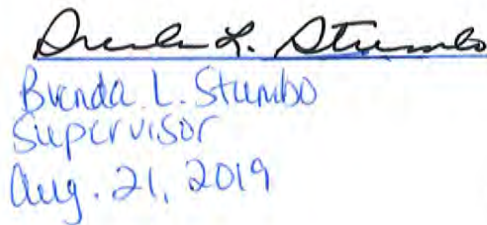 Brenda L. Stumbo
Brenda. L. Stumbo
Supervisor
Aug. 21, 2019